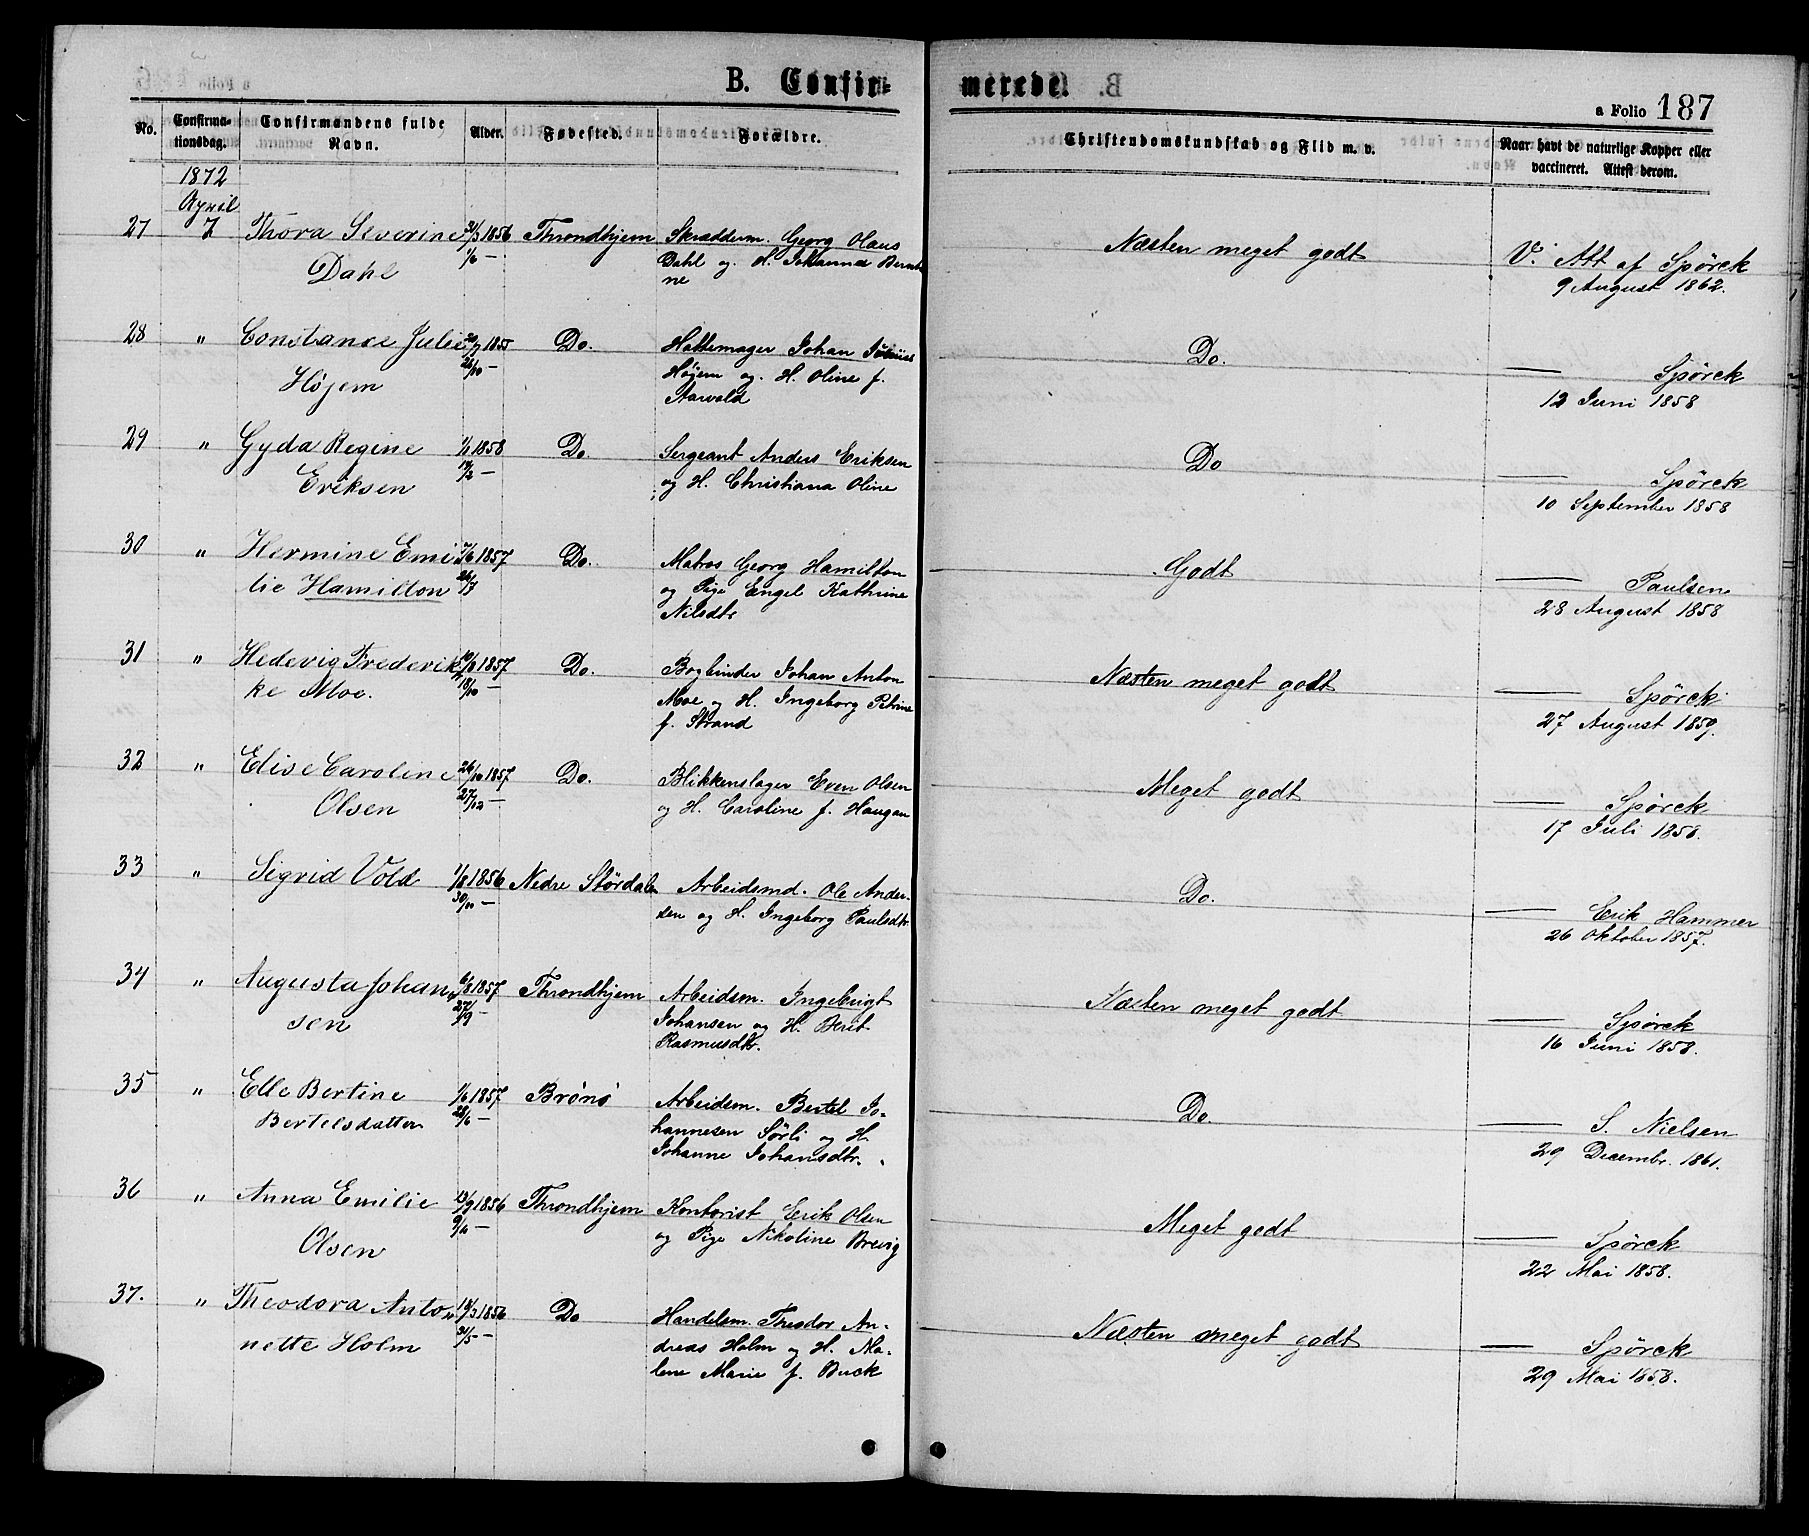 B. Confir-
merede.
a Folio 187
No.
Confirma-
tionsdag.
Confirmandens fulde
Navn.
Alder.
Fødested.
Forældre.
Christendomskundskab og Flid m. v.
Naar havt de naturlige Kopper eller
vaccineret. Attest derom.
1872
April
27 7 Thora Severine 1856 Throndhjem Skrædderm. Georg Olaus Næsten meget godt V. Att af Spörck
Dahl Dahl og H. Johanna Bernt 9 August 1862.
ne
28 " Constance Julie 1855 Do. Hattemager Johan Do. — Spörck
Höjem Höjem og H. Oline f. 12 Juni 1858
Aarvold
29 " Gyda Regine 1858 Do. Sergeant Anders Eriksen Do — Spörck
Eriksen og H. Christiana Oline 10 September 1858
30 " Hermine Emi 1857 Do. Matros Georg Hamilton Godt — Paulsen
lie Hamilton og Pige Engel Kathrine 28 August 1858
Nilsdtr
31 " Hedevig Frederik 1857 Do. Bogbinder Johan Anton Næsten meget godt — Spörck
ke Moe. 18/10 Moe og H. Ingeborg Petrine 27 August 1859.
f. Strand
32 " Elise Caroline 26/10 1857 Do. Blikkenslager Even Olsen Meget godt — Spörck
Olsen 27/12 — og H. Caroline f. Haugan 17 Juli 1858.
33 " Sigrid Vold 1/8 1856 Nedre Stördalen Arbeidsmd. Ole Ander- Do. — Erik Hammer
30/10 — sen og H. Ingeborg Paulsdtr 26 Oktober 1857.
34 " Augusta Johan 6/8 1857 Throndhjem Arbeidsm. Ingebrigt Næsten meget godt — Spörck
sen 27/9 - Johansen og H. Berit 16 Juni 1858.
Rasmusdtr.
35 " Elle Bertine 1/6 1857 Brönö Arbeidsm. Bertel Jo- Do. — S. Nielsen
Bertelsdatter 28/6 — hannesen Sörli og H. 29 Decembr. 1861.
Johanne Johansdtr.
36 " Anna Emilie 13/9 1856 Throndhjem Kontorist Erik Olsen Meget godt — Spörck
Olsen og Pige Nikoline Brevig 22 Mai 1858.
37. " Theodora Anto 1856 Do Handelsm. Theodor An- Næsten meget godt — Spörck
nette Holm 31/5 — dreas Holm og H. Ma- 29 Mai 1858.
lene Marie f. Buck